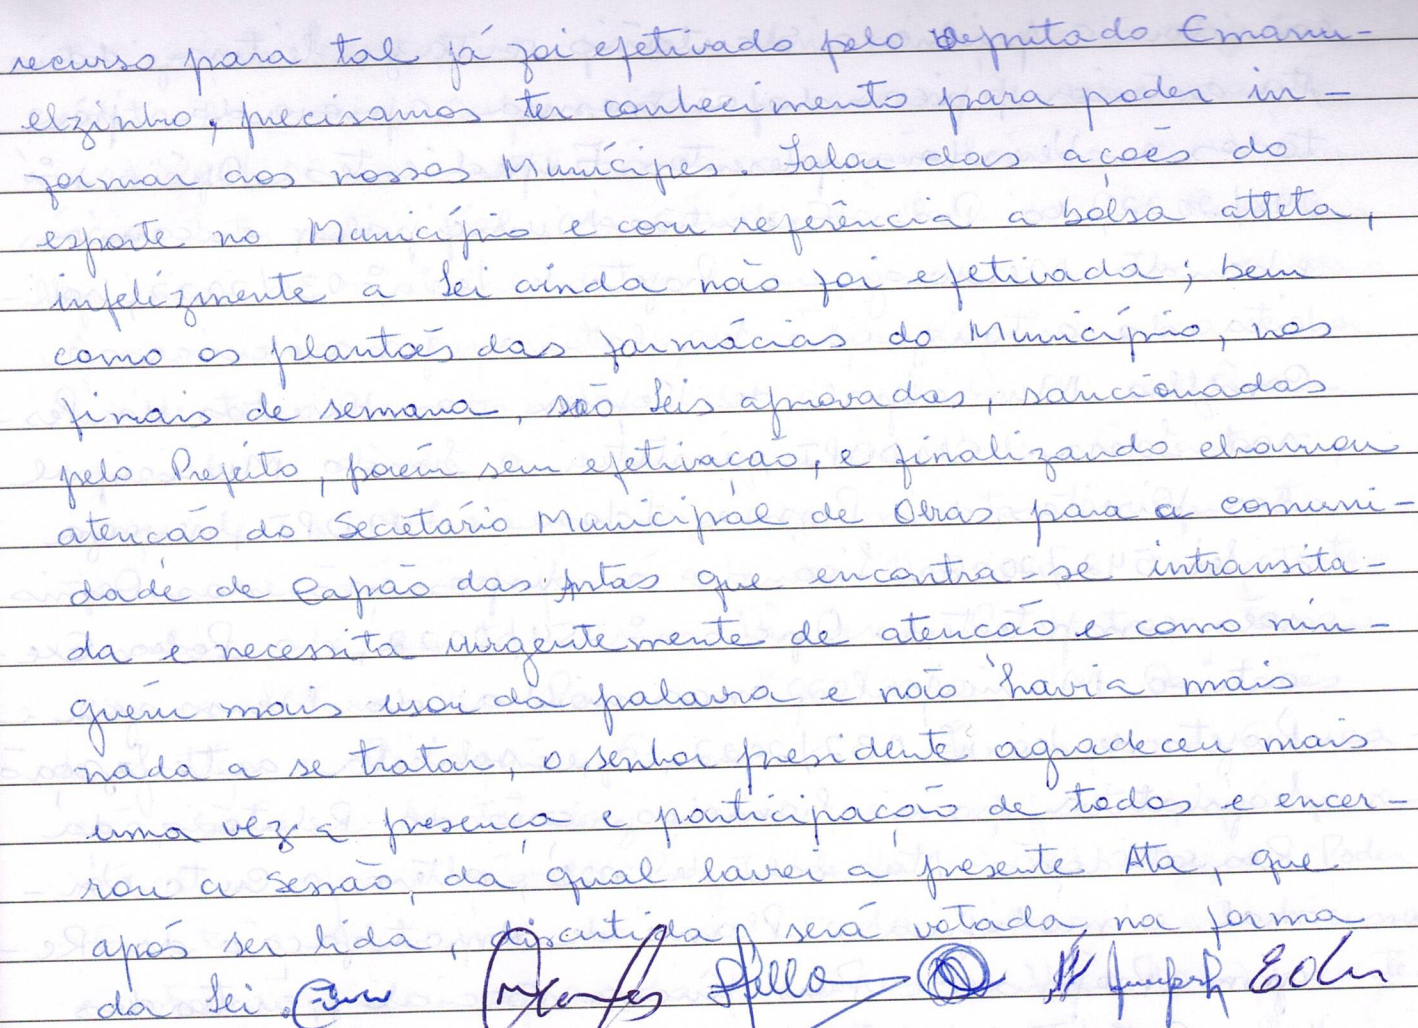 recurso para tal já foi efetivado pelo Deputado Emanu-
elzinho, precisamos ter conhecimento para poder in-
formar aos nossos Munícipes. Falou das ações do
esporte no Município e com referência a bolsa atleta,
infelizmente a Lei ainda não foi efetivada; bem
como os plantões das farmácias do Município, nos
finais de semana, são Leis aprovadas, sancionadas
pelo Prefeito, porém sem efetivação, e finalizando chamou
atenção do Secretario Municipal de Obras para a comuni-
dade de Capão das Antas que encontra-se intransita-
da e necessita urgentemente de atenção e como nin-
guém mais usou da palavra e não havia mais
nada a se tratar, o senhor presidente agradeceu mais
uma vez a presença e participação de todos e encer-
rou a sessão, da qual lavrei a presente Ata, que
após ser lida, discutida será votada na forma
da Lei.